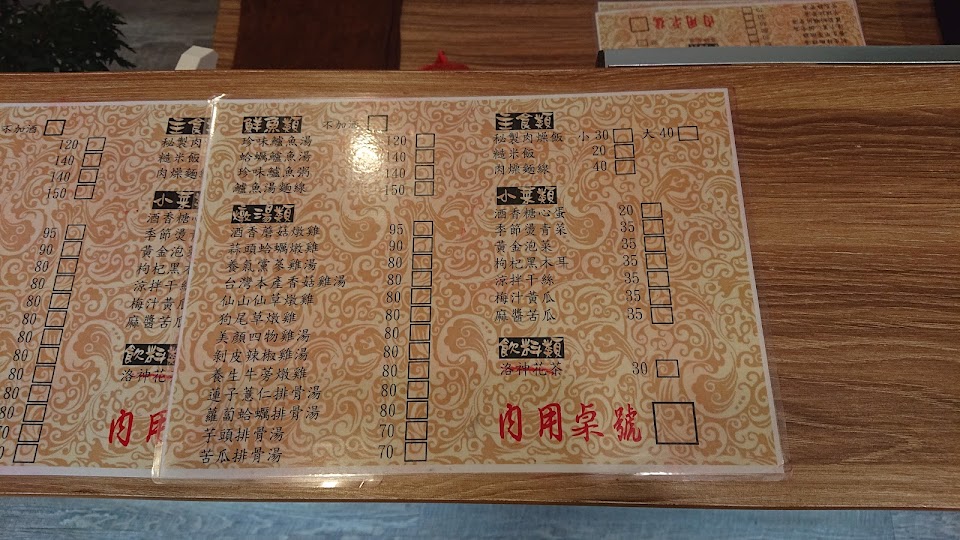 肉用桌號
不加酒
120
140
140
150
95
90
80
80
80
80
80
80
80
80
80
70
主食
秘製肉
糙米飯
肉燥麵線
小菜
酒香糖心
季節燙青
黃金泡菜
枸杞黑木
涼拌干絲
梅汁黃瓜
麻醬苦瓜
飲料
洛神花
肉用
鮮魚類 不加酒
珍味鱸魚湯 120
蛤蠣鱸魚湯 140
珍味鱸魚粥 140
鱸魚湯麵線 150
燉湯類
酒香蘑菇燉雞 95
蒜頭蛤蠣燉雞 90
養氣黨蔘雞湯 80
台灣本產香菇雞湯 80
仙山仙草燉雞 80
狗尾草燉雞 80
美顏四物雞湯 80
剝皮辣椒雞湯 80
養生牛蒡燉雞 80
蓮子薏仁排骨湯 80
蘿蔔蛤蠣排骨湯 80
芋頭排骨湯 70
苦瓜排骨湯 70
主食類
秘製肉燥飯 小 30 大 40
糙米飯 20
肉燥麵線 40
小菜類
酒香糖心蛋 20
季節燙青菜 35
黃金泡菜 35
枸杞黑木耳 35
涼拌干絲 35
梅汁黃瓜 35
麻醬苦瓜 35
飲料類
洛神花茶 30
內用桌號